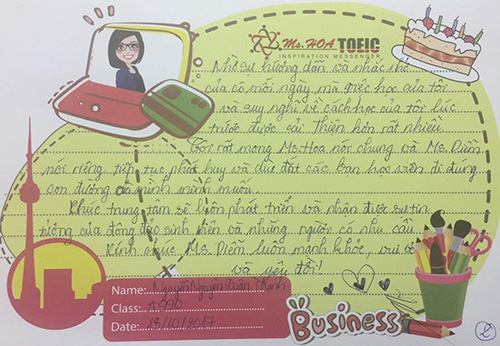 Ms. HOA TOEIC
INSPIRATION MESSENGER
Nhờ sự hướng dẫn và nhắc nhở
của cô mỗi ngày mà việc học của tôi
và suy nghĩ về cách học của tôi lúc
trước được cải thiện hơn rất nhiều.
Tôi rất mong Ms Hoa nói chung và Ms. Diễm
nói riêng, tiếp tục phát huy và dìu dắt các bạn học viên đi đúng
con đường mình muốn.
Chúc trung tâm sẽ luôn phát triển và nhận được sự tin
tưởng của đông đảo sinh viên và những người có nhu cầu
Kính chúc Ms. Diễm luôn mạnh khỏe, vui vẻ
và yêu đời!
Name: Nguyễn Nguyễn Xuân Thanh
Class: A990
Date: 13/10/2017
Business